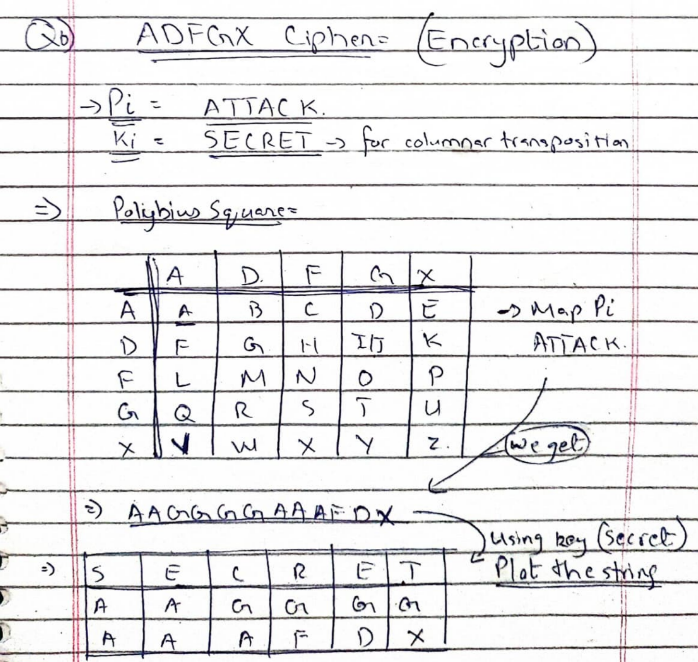 Qb) ADFGX Cipher= (Encryption)
→ Pi = ATTACK.
Ki = SECRET → for columnar transposition
⇒ Polybius Square=
A D. F G X
A A B C D E → Map Pi
D F G H I/J K ATTACK.
F L M N O P
G Q R S T U
X V W X Y Z. we get
⇒ AAGGGGAAAFDX
Using key (Secret)
⇒ S E C R E T Plot the string
A A G G G G
A A A F D X